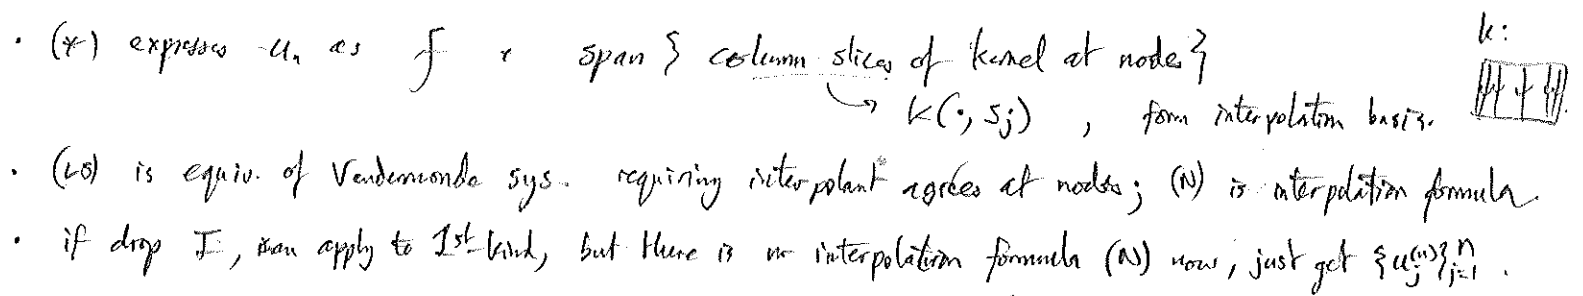 · (*) expresses uₙ as f + span { column slices of kernel at nodes } k:
↳ k(·, sⱼ) , form interpolation basis.
· (LS) is equiv. of Vandermonde sys. requiring interpolant agrees at nodes; (N) is interpolation formula.
· if drop I, can apply to 1st-kind, but there is no interpolation formula (N) now, just get {uⱼ⁽ⁿ⁾}ⁿⱼ₌₁ .